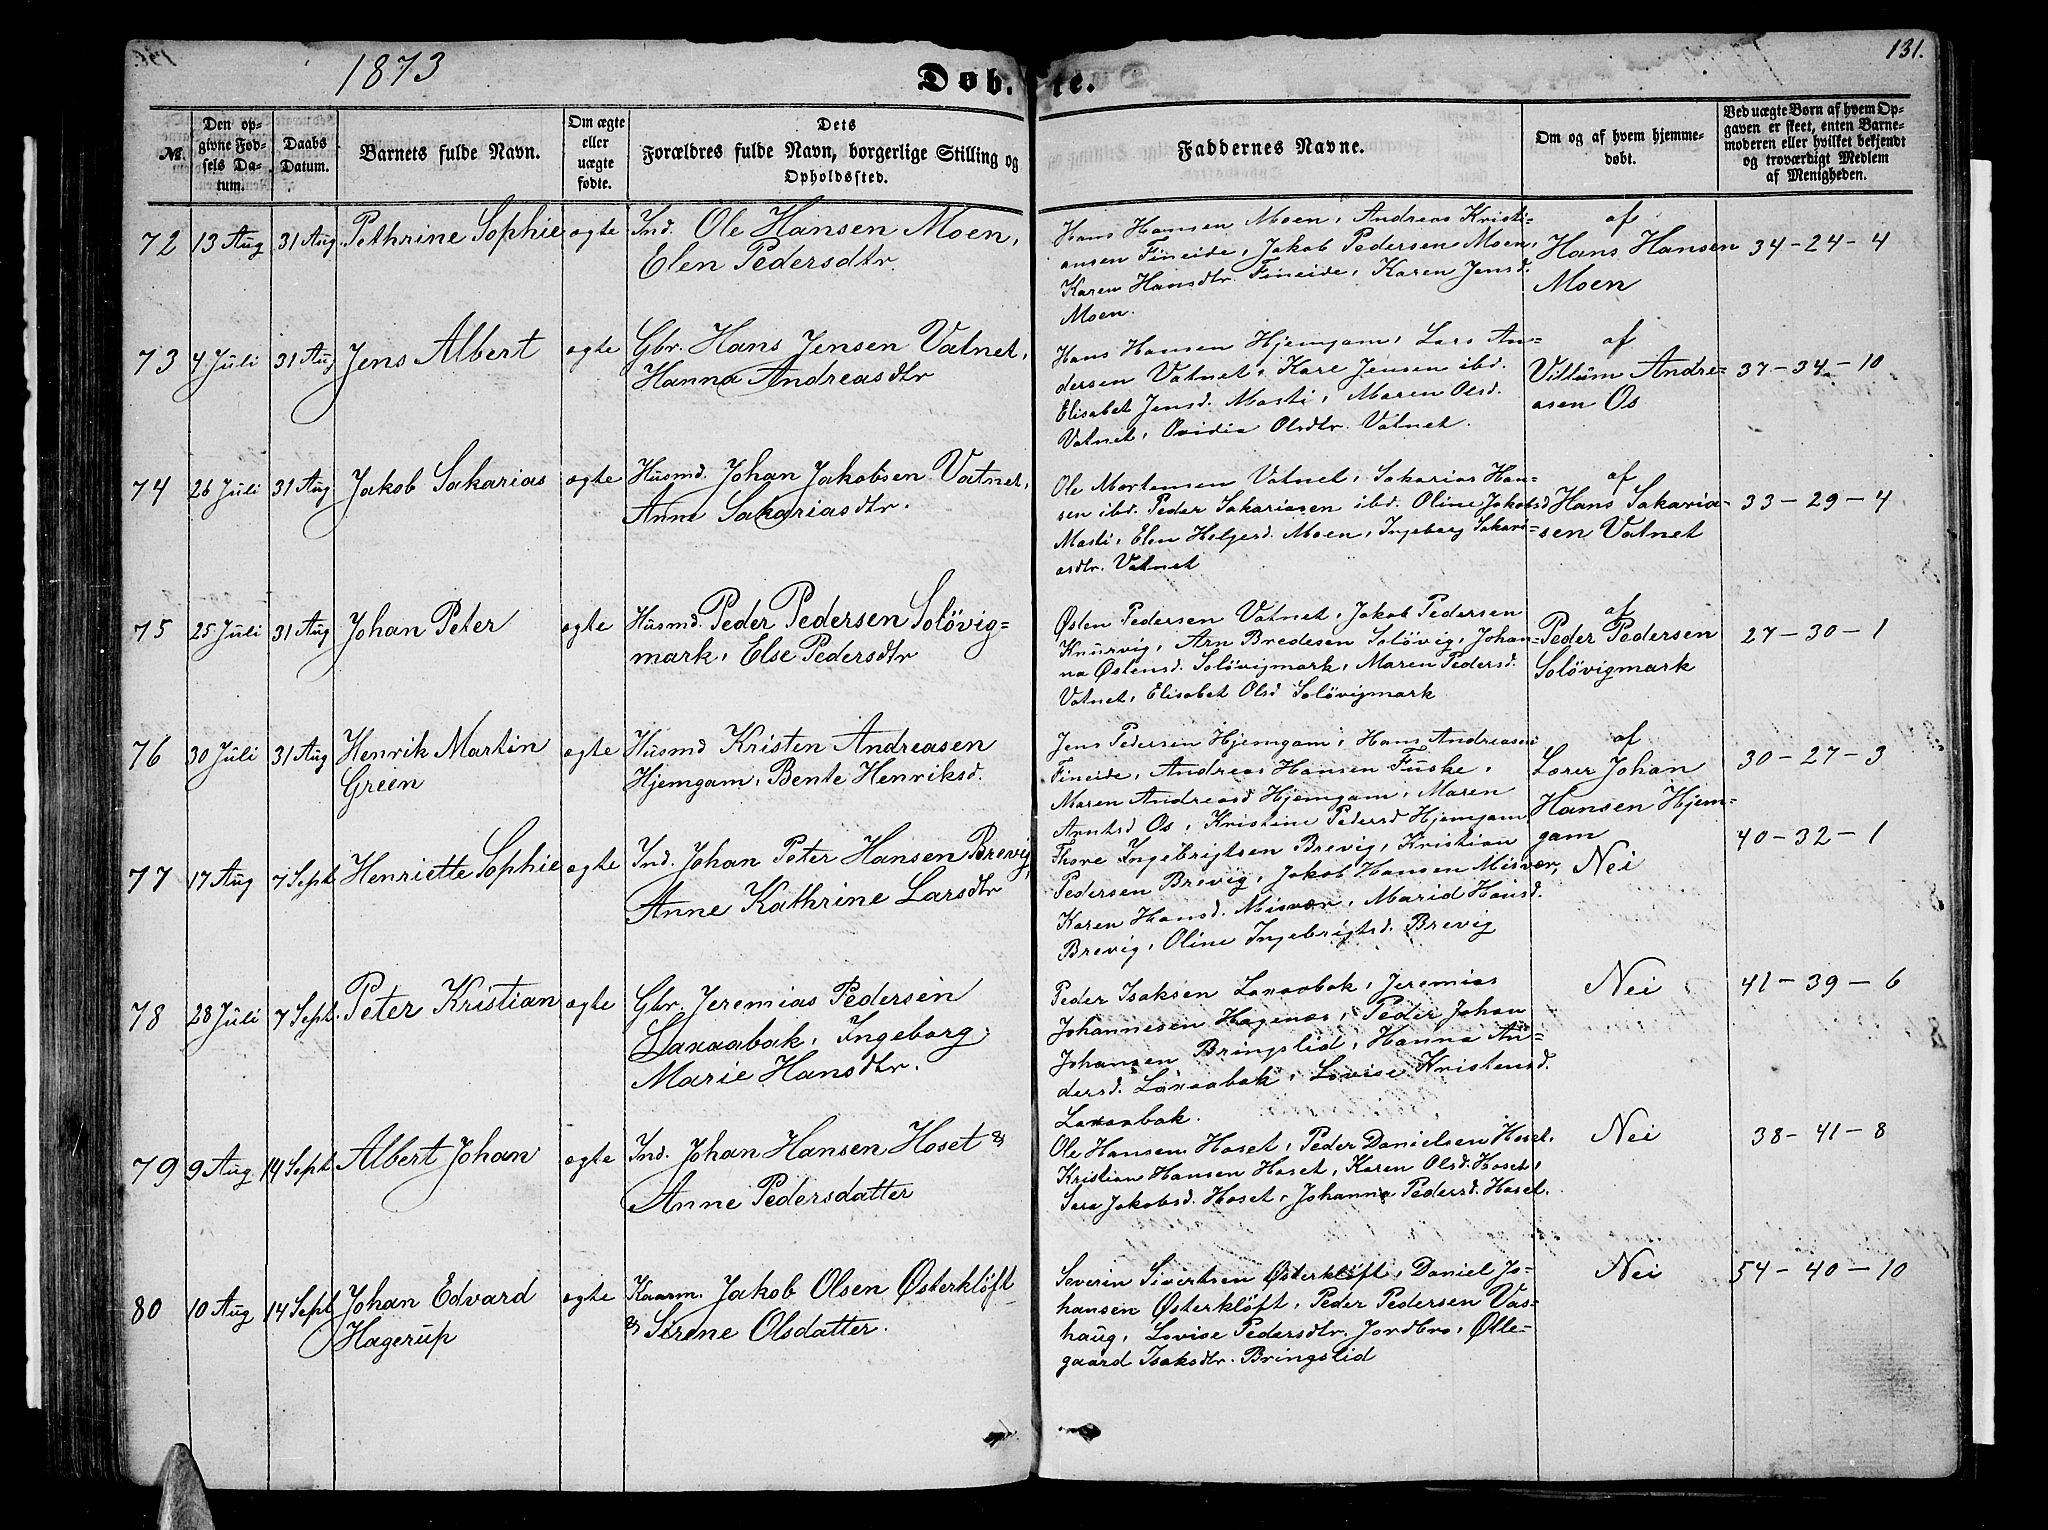 1873
Døb-te.
131.
№.
Den op-
givne Fød-
sels Da-
tum.
Daabs
Datum.
Barnets fulde Navn.
Om ægte
eller
uægte
fødte.
Dets
Forældres fulde Navn, borgerlige Stilling og
Opholdssted.
Faddernes Navne.
Om og af hvem hjemme-
døbt.
Ved uægte Børn af hvem Op-
gaven er skeet, enten Barne-
moderen eller hvilket bekjendt
og troværdigt Medlem
af Menigheden.
72 13 Aug 31 Aug Pethrine Sophie ægte
Ind. Ole Hansen Moen,
Elen Pedersdtr.
Hans Hansen Moen, Andreas Kristi-
ansen Fineide, Jakob Pedersen Moen,
Karen Hansdtr. Fineide, Karen Jensd.
Moen.
af
Hans Hansen
Moen
34-24-4
73 4 Juli 31 Aug Jens Albert ægte
Gbr. Hans Jensen Vatnet,
Hanna Andreasdtr
Hans Hansen Hjemgam, Lars An-
dersen Vatnet, Kare Jensen ibd.
Elisabet Jensd. Mosti, Maren Olsd.
Vatnet, Ovidia Olsdtr. Vatnet.
af
Villum Andre-
asen Os
37-34-10
74 26 Juli 31 Aug Jakob Sakarias ægte
Husmd. Johan Jakobsen Vatnet,
Anne Sakariasdtr.
Ole Mortensen Vatnet, Sakarias Han-
sen ibd. Peder Sakariasen ibd. Oline Jakobsd
Mosti, Elen Holgersd. Moen, Ingeborg Sakari-
asdtr. Vatnet
af
Hans Sakaria-
sen Vatnet
33-29-4
75 25 Juli 31 Aug Johan Peter ægte
Husmd. Peder Pedersen Soløvig-
mark, Else Pedersdtr
Østen Pedersen Vatnet, Jakob Pedersen
Knurvig, Arn Bredesen Soløvig, Johan-
na Østensd. Soløvigmark, Maren Pedersd.
Vatnet, Elisabet Olsd Soløvigmark
af
Peder Pedersen
Soløvigmark
27-30-1
76 30 Juli 31 Aug Henrik Martin
Green
ægte
Husmd Kristen Andreasen
Hjemgam, Bente Henriksd.
Jens Pedersen Hjemgam, Hans Andreasen
Fineide, Andreas Hansen Fuske,
Maren Andreasd Hjemgam, Maren
Arntsd Os, Kristine Pedersd Hjemgam
af
Lærer Johan
Hansen Hjem-
gam
30-27-3
77 17 Aug 7 Sept Henriette Sophie ægte
Ind. Johan Peter Hansen Brevig,
Anne Kathrine Larsdtr
Thore Ingebrigtsen Brevig, Kristian
Pedersen Brevig, Jakob Hansen Misvær,
Karen Hansd. Misvær, Marid Hansd.
Brevig, Oline Ingebrigtsd. Brevig
Nei
40-32-1
78 28 Juli 7 Sept. Peter Kristian ægte
Gbr. Jeremias Pedersen
Laxaabak, Ingeborg
Marie Hansdtr.
Peder Isaksen Laxaabak, Jeremias
Johannesen Hagenæs, Peder Johan
Johansen Bringslid, Hanna An-
dersd. Laxaabak, Lovise Kristensd.
Laxaabak.
Nei
41-39-6
79 9 Aug 14 Sept Albert Johan ægte
Ind. Johan Hansen Hoset &
Anne Pedersdatter
Ole Hansen Hoset, Peder Danielsen Hoset,
Kristian Hansen Hoset, Karen Olsd. Hoset,
Sara Jakobsd. Hoset, Johanna Pedersd. Hoset.
Nei
38-41-8
80 10 Aug 14 Sept Johan Edvard
Hagerup
ægte
Kaarm. Jakob Olsen Østerkløft
& Sirene Olsdatter.
Severin Sivertsen Østerkløft, Daniel Jo-
hansen Østerkløft, Peder Pedersen Vas-
haug, Lovise Pedersdtr. Jordbro, Ølle-
gaard Isaksdtr. Bringslid
Nei
54-40-10